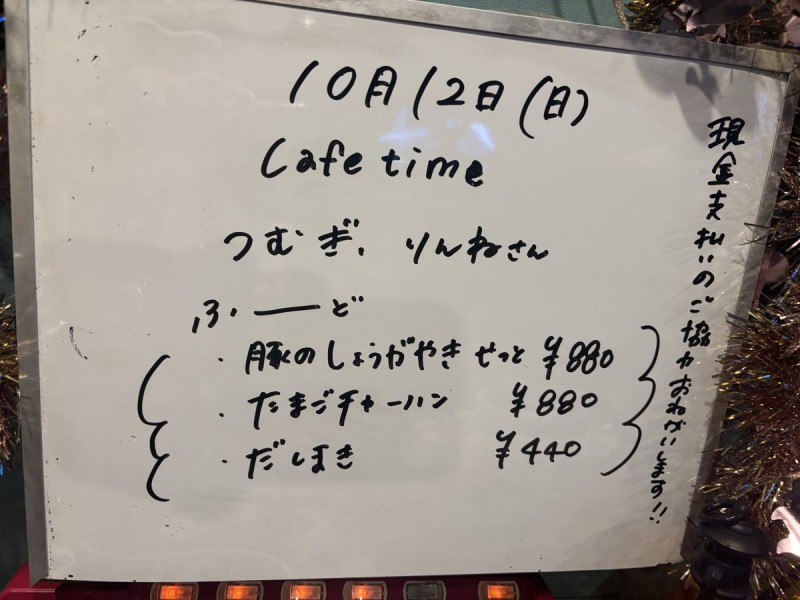 10月12日(日)
Cafe time
つむぎ、りんねさん
ふーど
・豚のしょうがやきせっと ¥880
・たまごチャーハン ¥880
・だしまき ¥440
現金支払いのご協力おねがいします!!